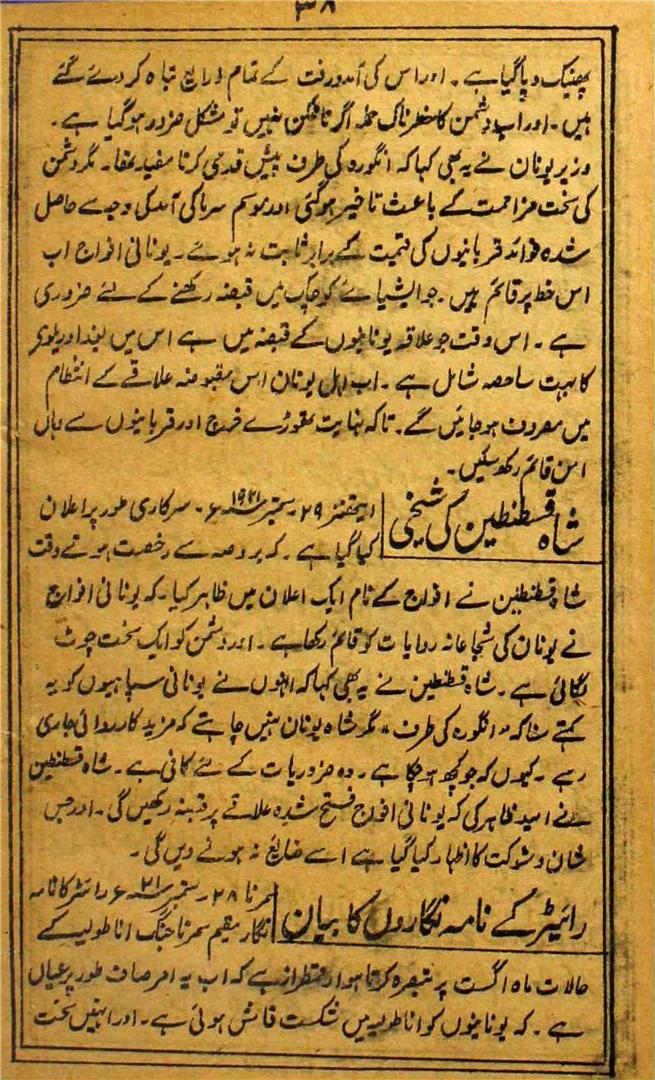 ۳۸
پھینک دیا گیا ہے۔ اور اس کی آمدورفت کے تمام ذرایع تباہ کر دئے گئے
ہیں۔ اور اب دشمن کا خطرناک حملہ اگر ناممکن نہیں تو مشکل ضرور ہو گیا ہے۔
وزیر یونان نے یہ بھی کہا کہ انگورہ کی طرف پیش قدمی کرنا مفید تھا۔ مگر دشمن
کی سخت مزاحمت کے باعث تاخیر ہو گئی اور موسم سرما کی آمد کی وجہ سے حاصل
شدہ فوائد قربانیوں کی قیمت کے برابر ثابت نہ ہوئے۔ یونانی افواج اب
اس خط پر قائم ہیں۔ جو ایشیائے کوچک میں قبضہ رکھنے کے لئے ضروری
ہے۔ اس وقت جو علاقہ یونانیوں کے قبضہ میں ہے اس میں بغداد ریلوے
کا بہت سا حصہ شامل ہے۔ اب اہل یونان اس مقبوضہ علاقے کے انتظام
میں مصروف ہو جائیں گے۔ تاکہ نہایت تھوڑے خرچ اور قربانیوں سے وہاں
امن قائم رکھ سکیں۔
شاہ قسطنطین کی شیخی
ایتھنز ۲۹۔ ستمبر ۱۹۲۱ء۔ سرکاری طور پر اعلان
کیا گیا ہے۔ کہ بروصہ سے رخصت ہوتے وقت
شاہ قسطنطین نے افواج کے نام ایک اعلان میں ظاہر کیا۔ کہ یونانی افواج
نے یونان کی شجاعانہ روایات کو قائم رکھا ہے۔ اور دشمن کو ایک سخت چوٹ
لگائی ہے۔ شاہ قسطنطین نے یہ بھی کہا کہ انہوں نے یونانی سپاہیوں کو یہ
کہتے سنا کہ "انگورہ کی طرف" مگر شاہ یونان نہیں چاہتے کہ مزید کارروائی جاری
رہے۔ کیوں کہ جو کچھ ہو چکا ہے۔ وہ ضروریات کے لئے کافی ہے۔ شاہ قسطنطین
نے امید ظاہر کی کہ یونانی افواج فتح شدہ علاقے پر قبضہ رکھیں گی۔ اور جس
شان و شوکت کا اظہار کیا گیا ہے اسے ضایع نہ ہونے دیں گی۔
رائیٹر کے نامہ نگاروں کا بیان
سمرنا ۲۸۔ ستمبر ۲۱ء رائٹر کا نامہ
نگار مقیم سمرنا جنگ اناطولیہ کے
حالات ماہ اگست پر تبصرہ کرتا ہوا رقمطراز ہے کہ اب یہ امر صاف طور پر عیاں
ہے۔ کہ یونانیوں کو اناطولیہ میں شکست فاش ہوئی ہے۔ اور انہیں سخت